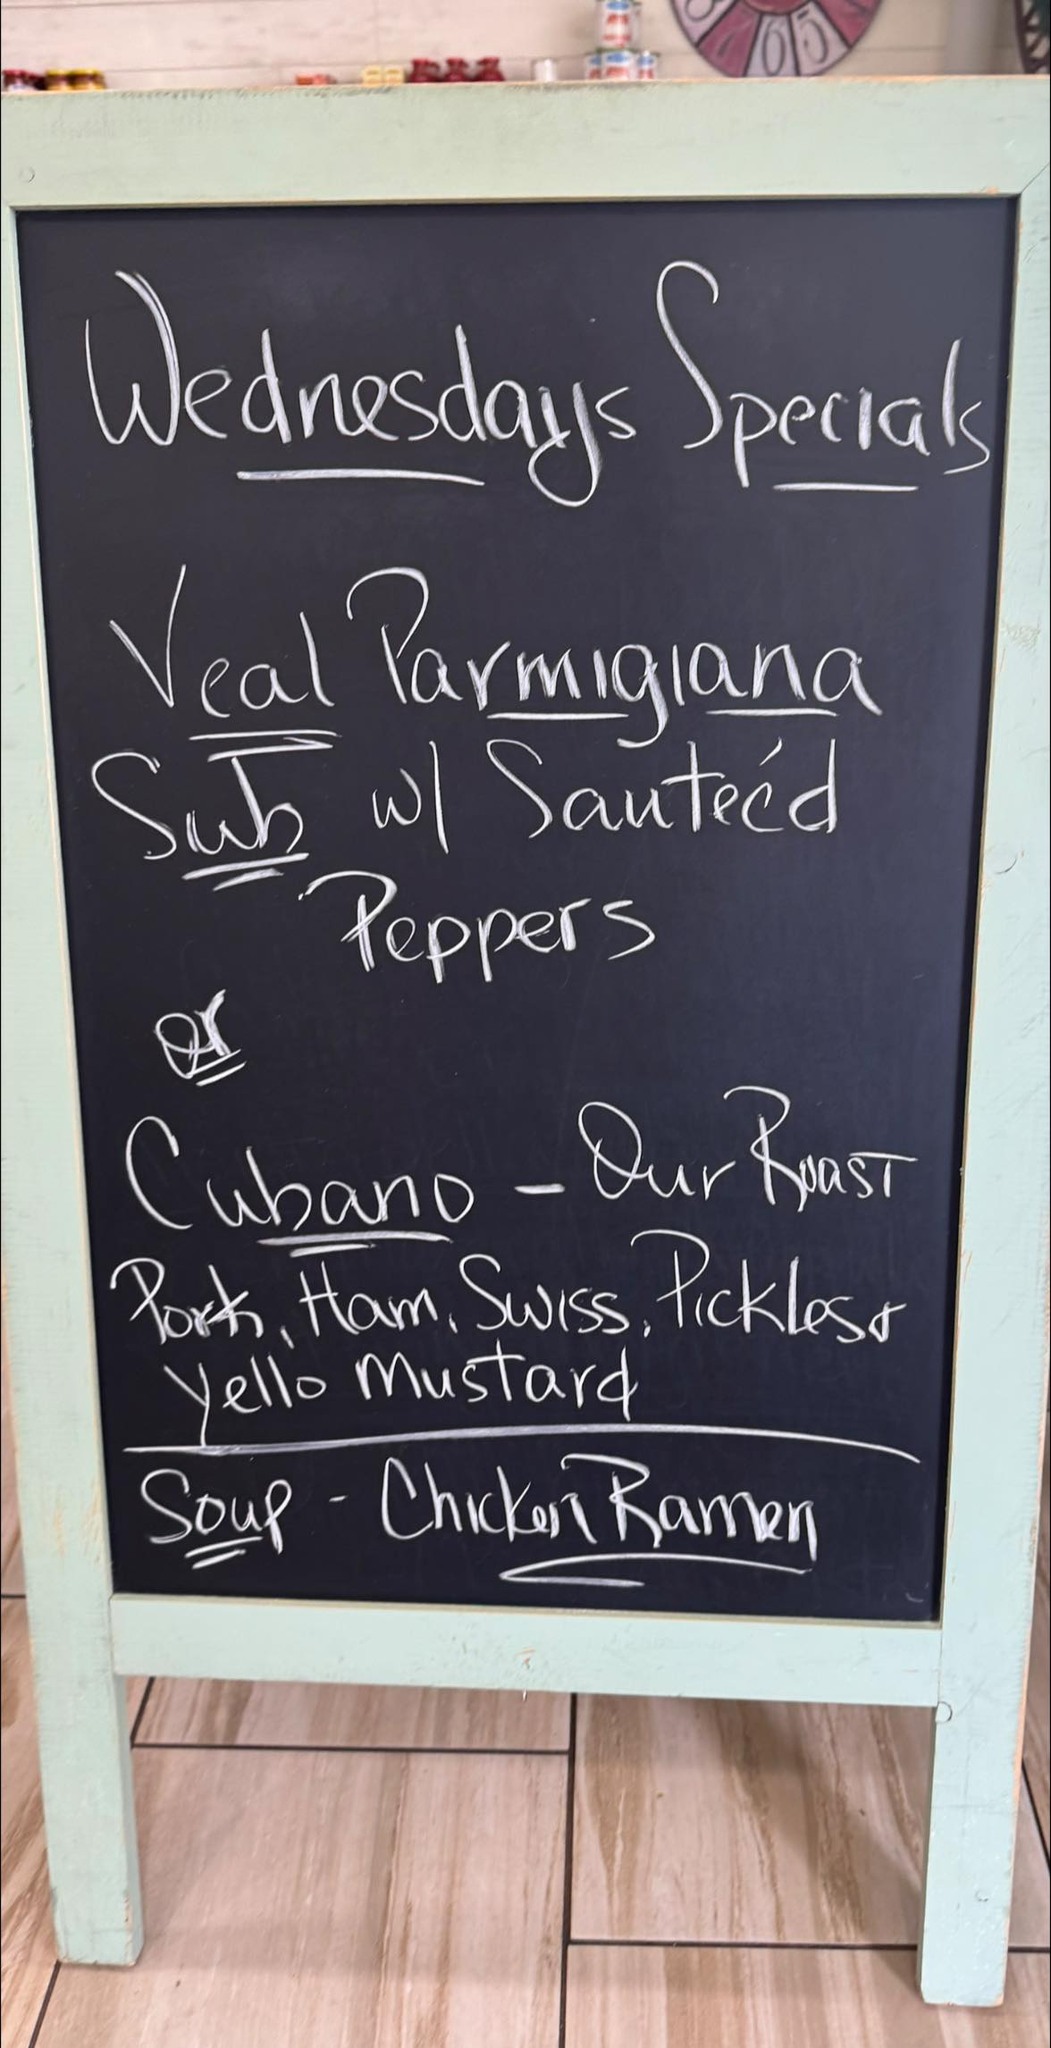 Wednesdays Specials
Veal Parmigiana
Sub w/ Sauteé'd
Peppers
or
Cubano - Our Roast
Pork, Ham, Swiss, Pickles &
Yello Mustard
Soup - Chicken Ramen